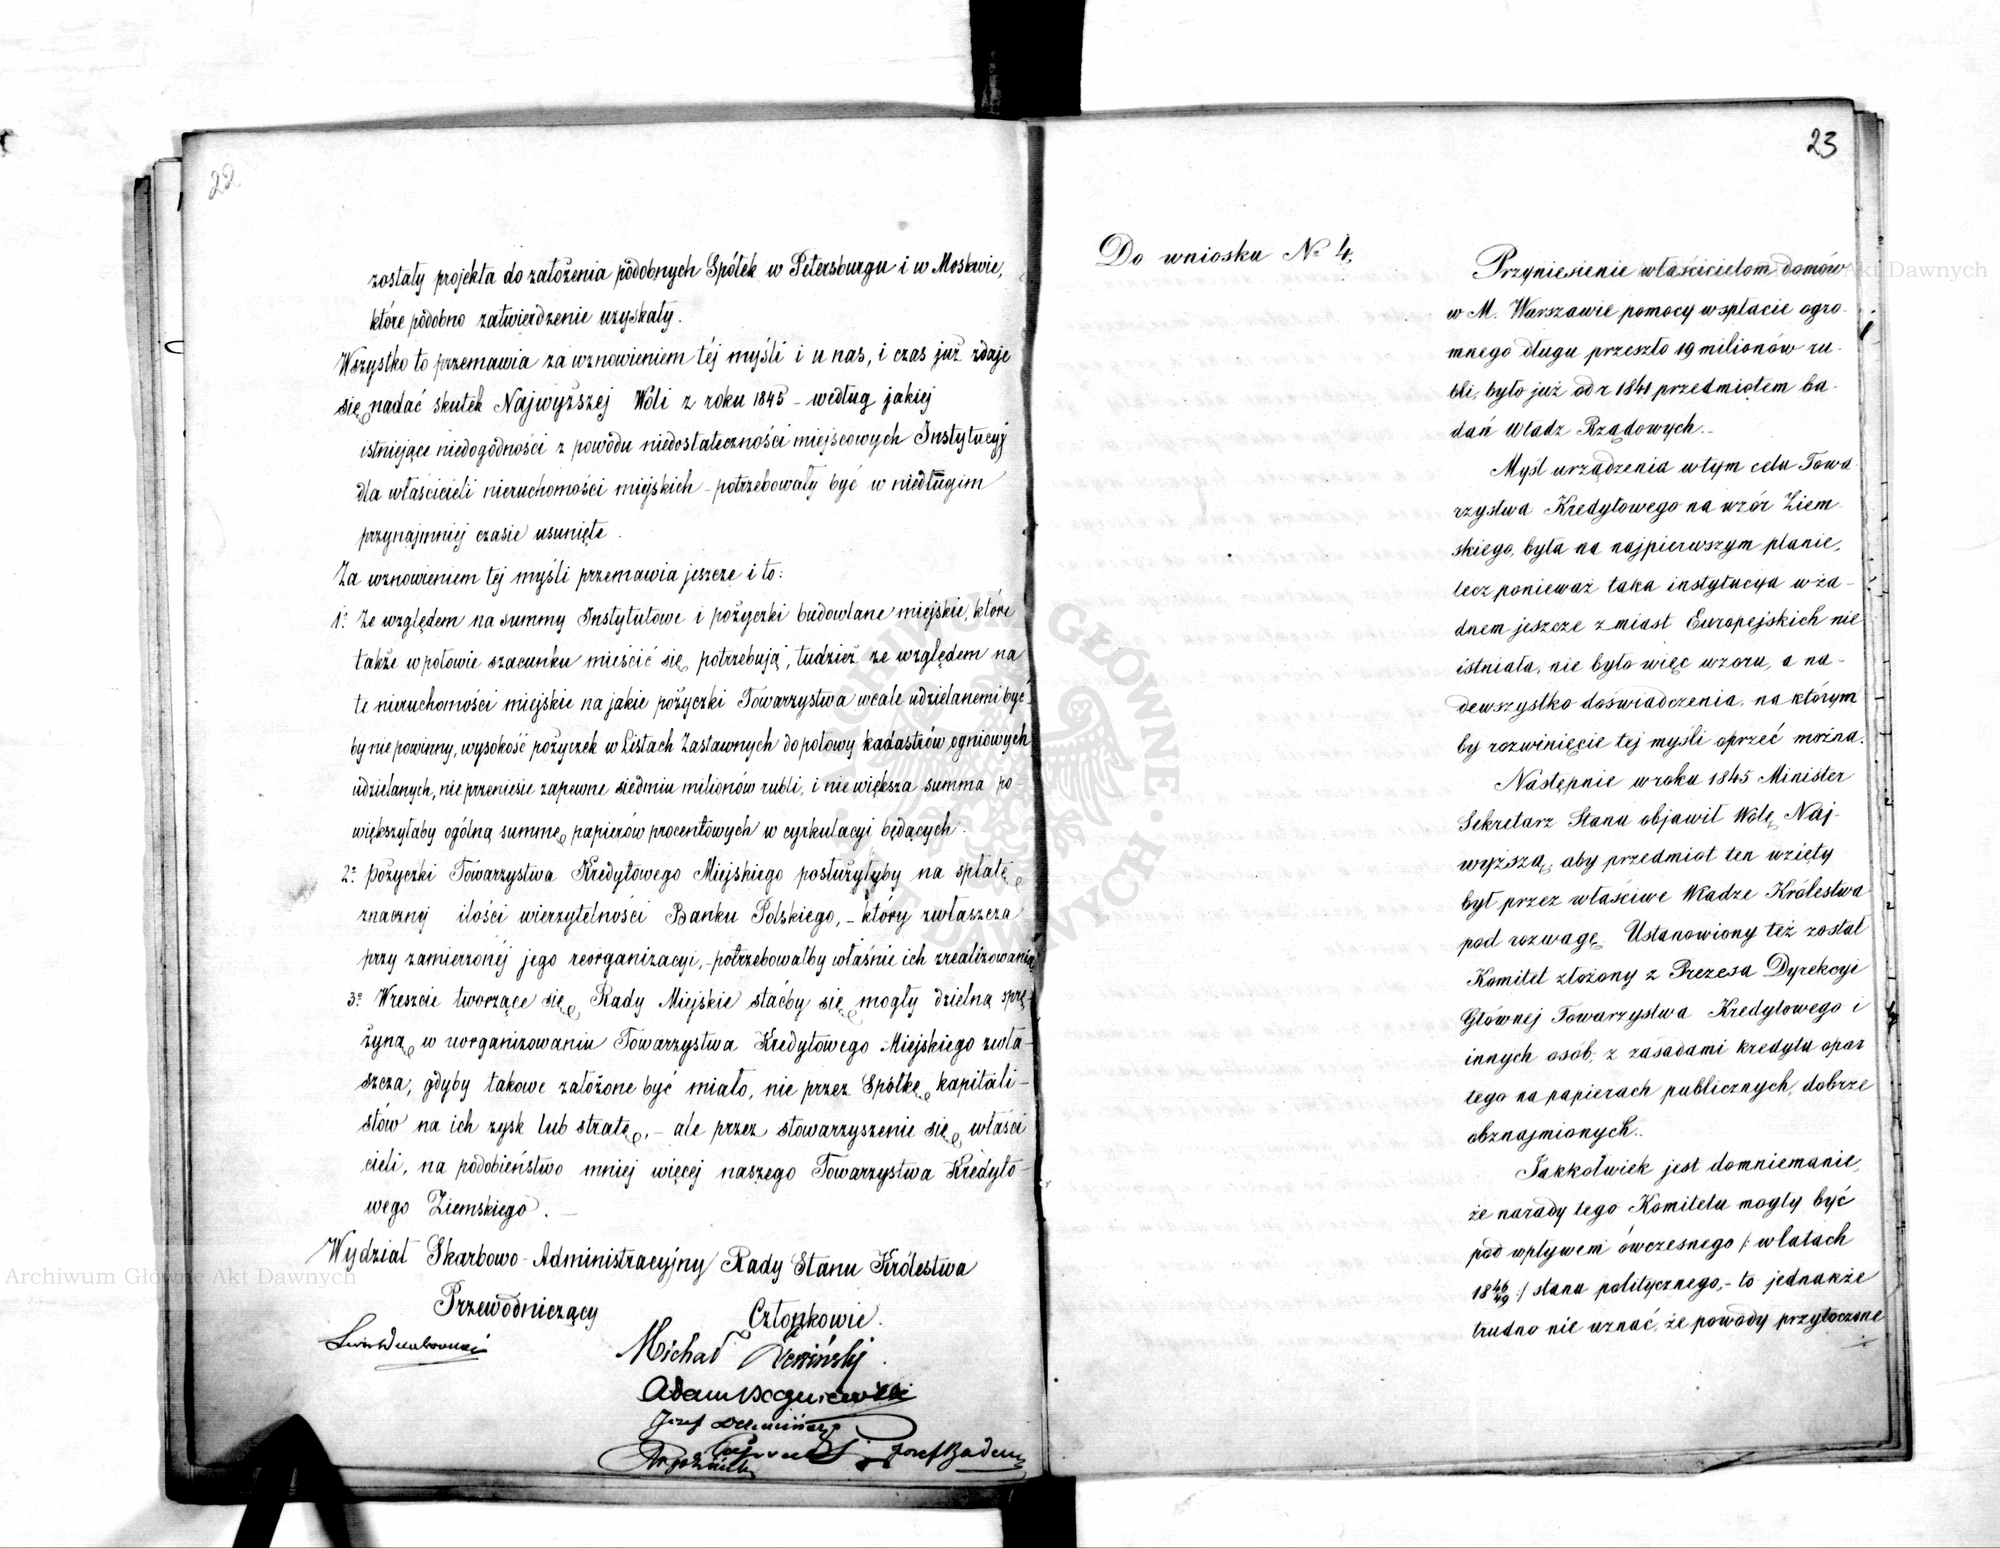 22
zostały projekta do założenia podobnych Spółek w Petersburgu i w Moskwie,
które podobno zatwierdzenie uzyskały.
Wszystko to przemawia za wznowieniem téj myśli i u nas, i czas już zdaje
się nadać skutek Najwyższej Woli z roku 1845 – według jakiej
istniejące niedogodności z powodu niedostateczności miejscowych Instytucyj
dla właścicieli nieruchomości miejskich – potrzebowały być w niedługim
przynajmniej czasie usunięte.
Za wznowieniem tej myśli przemawia jeszcze i to:
1o Ze względem na summy Instytutowe i pożyczki budowlane miejskie, które
także w połowie szacunku mieścić się potrzebują, tudzież ze względem na
te nieruchomości miejskie na jakie pożyczki Towarzystwa wcale udzielanemi być
by nie powinny, wysokość pożyczek w Listach Zastawnych do połowy kadastrów ogniowych
udzielanych, nie przeniesie zapewne siedmiu milionów rubli, i nie większa summa po-
większyłaby ogólną summę papierów procentowych w cyrkulacyi będących.
2o Pożyczki Towarzystwa Kredytowego Miejskiego posłużyłyby na spłatę
znacznej ilości wierzytelności Banku Polskiego, – który zwłaszcza
przy zamierzonéj jego reorganizacyi, – potrzebowałby właśnie ich zrealizowania
3o Wreszcie tworzące się Rady Miejskie staćby się mogły dzielną sprę-
żyną w uorganizowaniu Towarzystwa Kredytowego Miejskiego zwła-
szcza, gdyby takowe założone być miało, nie przez Spółkę kapitali-
stów na ich zysk lub stratę, – ale przez stowarzyszenie się właści
cieli, na podobieństwo mniej więcej naszego Towarzystwa Kredyto-
wego Ziemskiego. –
Wydział Skarbowo-Administracyjny Rady Stanu Królestwa
Przewodniczący
Członkowie.
Michał
Adam
Józef
Józef Badeni
23
Do wniosku No 4.
Przyniesienie właścicielom domów
w M. Warszawie pomocy w spłacie ogro-
mnego długu przeszło 19 milionów ru-
bli, było już od r 1841 przedmiotem ba-
dań Władz Rządowych. –
Myśl urządzenia w tym celu Towa
rzystwa Kredytowego na wzór Ziem-
skiego, była na najpierwszym planie,
lecz ponieważ taka instytucija w ża-
dnem jeszcze z miast Europejskich nie
istniała, nie było więc wzoru, a na-
dewszystko doświadczenia, na którym
by rozwinięcie tej myśli oprzeć można.
Następnie w roku 1845 Minister
Sekretarz Stanu objawił Wolę Naj-
wyższą, aby przedmiot ten wzięty
był przez właściwe Władze Królestwa
pod rozwagę. Ustanowiony też został
Komitet złożony z Prezesa Dyrekcyi
Głównej Towarzystwa Kredytowego i
innych osób, z zasadami kredytu opar
tego na papierach publicznych, dobrze
obznajmionych. –
Jakkolwiek jest domniemanie,
że narady tego Komitetu mogły być
pod wpływem ówczesnego /: w latach
18 46/49 :/ stanu politycznego, – to jednakże
trudno nie uznać, że powody przytoczone
Archiwum Główne Akt Dawnych
Archiwum Główne Akt Dawnych
ARCHIWUM GŁÓWNE AKT DAWNYCH